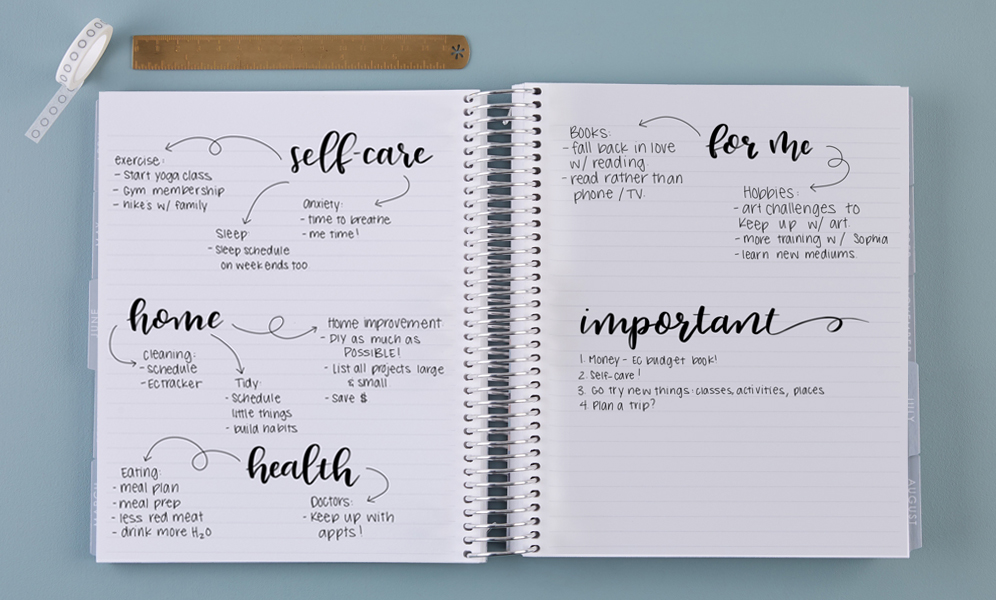 self-care
exercise:
- Start yoga class
- Gym membership
- hike's w/ family
Anxiety:
- time to breathe
- me time!
Sleep:
- Sleep schedule
on weekends too
home
Cleaning:
- Schedule
- EC tracker
Tidy:
- Schedule
little things
- build habits
Home improvement:
- DIY as much as
POSSIBLE!
- List all projects large
& small
- save $
health
Eating:
- meal plan
- meal prep
- less red meat
- drink more H₂O
Doctors:
- Keep up with
appts!
for me
Books:
- fall back in love
w/ reading.
- read rather than
phone / TV.
Hobbies:
- art challenges to
keep up w/ art.
- more training w/ Sophia
- learn new mediums.
important
1. Money - EC budget book!
2. Self-care!
3. Go try new things: classes, activities, places
4. Plan a trip?
JULY
AUGUST